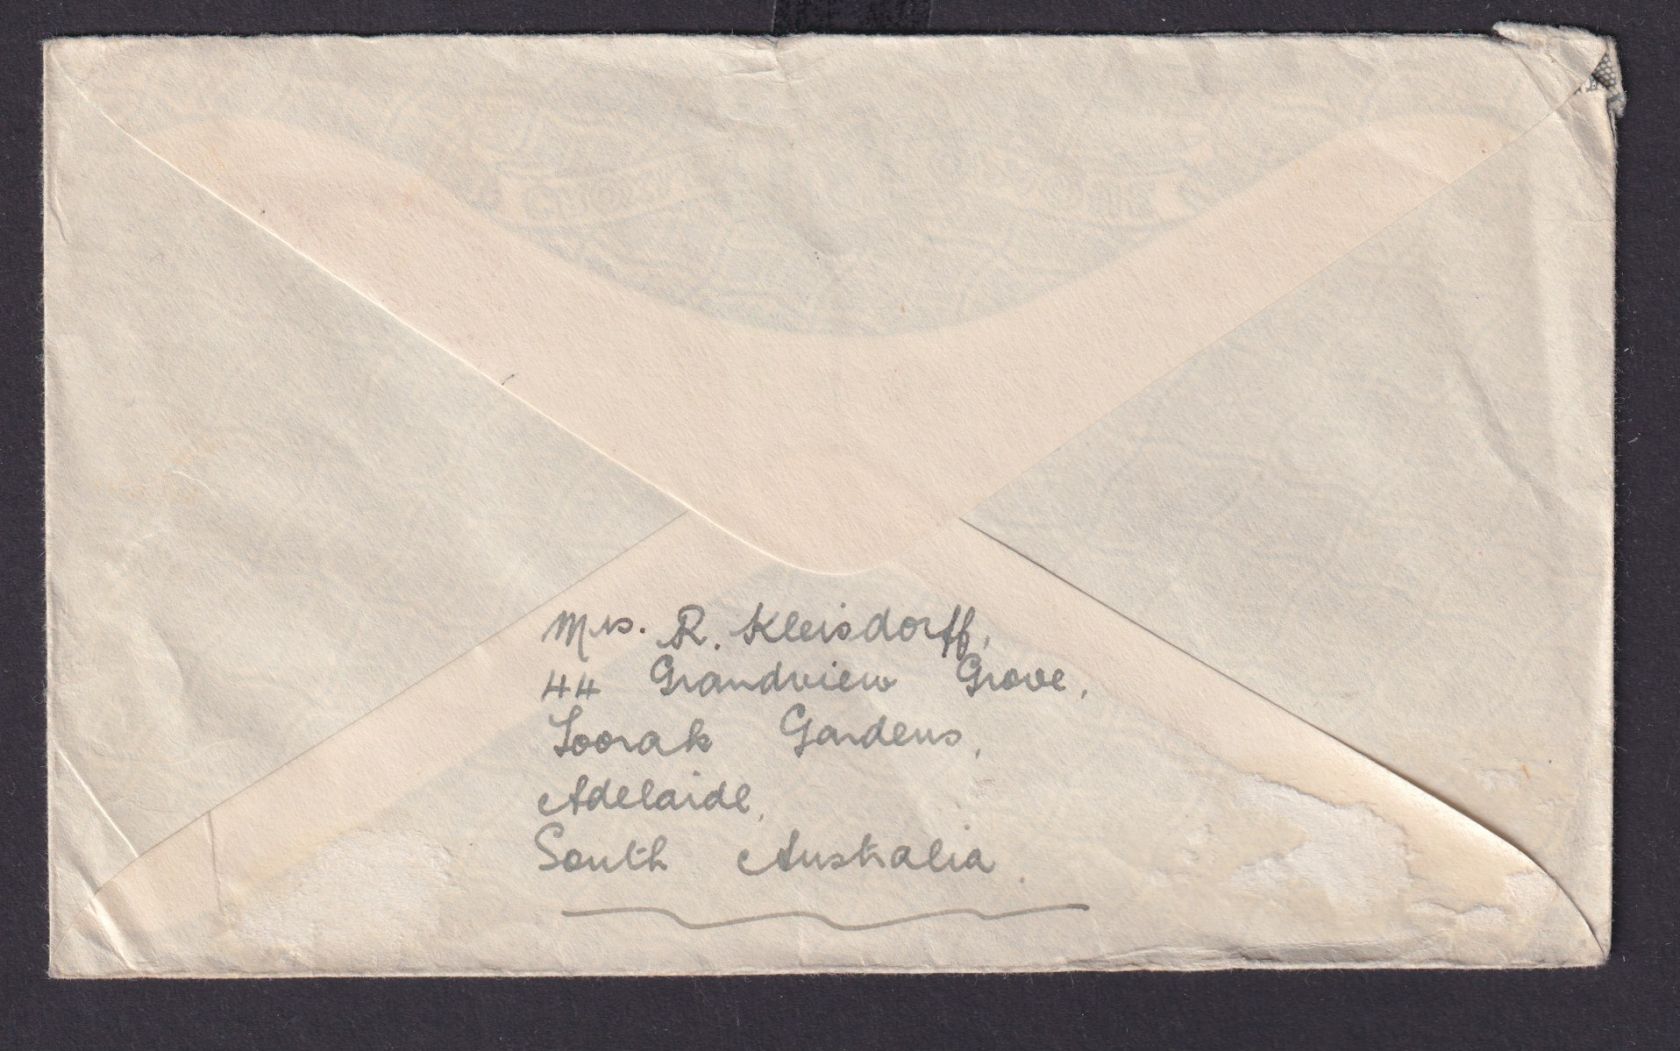 Mrs. R. Kleisdorff,
44 Grandview Grove,
Toorak Gardens,
Adelaide,
South Australia.